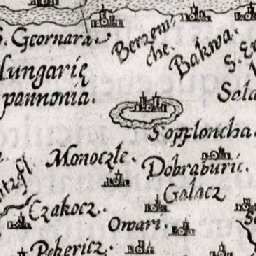 S. Geornara.
Berzem̄
che.
Bakwa.
Hungarię
pannonia.
Sopploncha
Monoczle.
Dobraburic.
Galacz
Czakocz.
Omari.
Pekericz